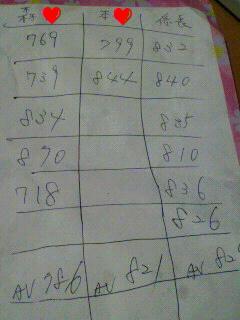 森 ❤ 本 ❤ 係長
769 799 832
739 844 840
834 835
890 810
718 836
826
AV 786 AV 821 AV 82